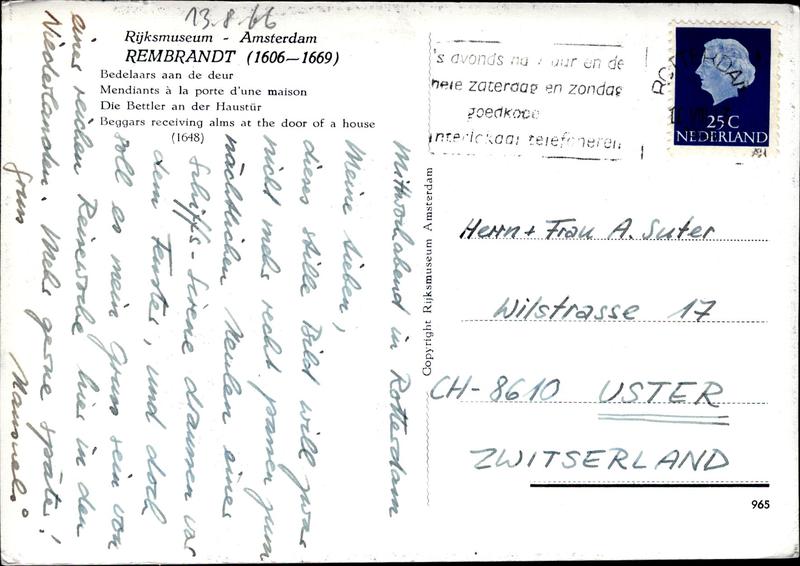 13.8.66
Rijksmuseum - Amsterdam
REMBRANDT (1606—1669)
Bedelaars aan de deur
Mendiants à la porte d'une maison
Die Bettler an der Haustür
Beggars receiving alms at the door of a house
(1648)
Mittwochabend in Rotterdam
Meine Lieben,
dieses stille Bild will zwar
nicht mehr recht passen zum
nächtlichen Heulen einer
Schiffs-Sirene draussen vor
dem Fenster, und doch
soll es mein Gruss sein von
einer reichen Reisewoche hier in den
Niederlanden. Mehr gerne später!
Gruss
Copyright Rijksmuseum Amsterdam
's avonds na 7 uur en de
hele zaterdag en zondag
goedkoop
interlokaal telefoneren
ROTTERDAM
25C
NEDERLAND
Herrn + Frau A. Suter
Wilstrasse 17
CH-8610 USTER
ZWITSERLAND
965